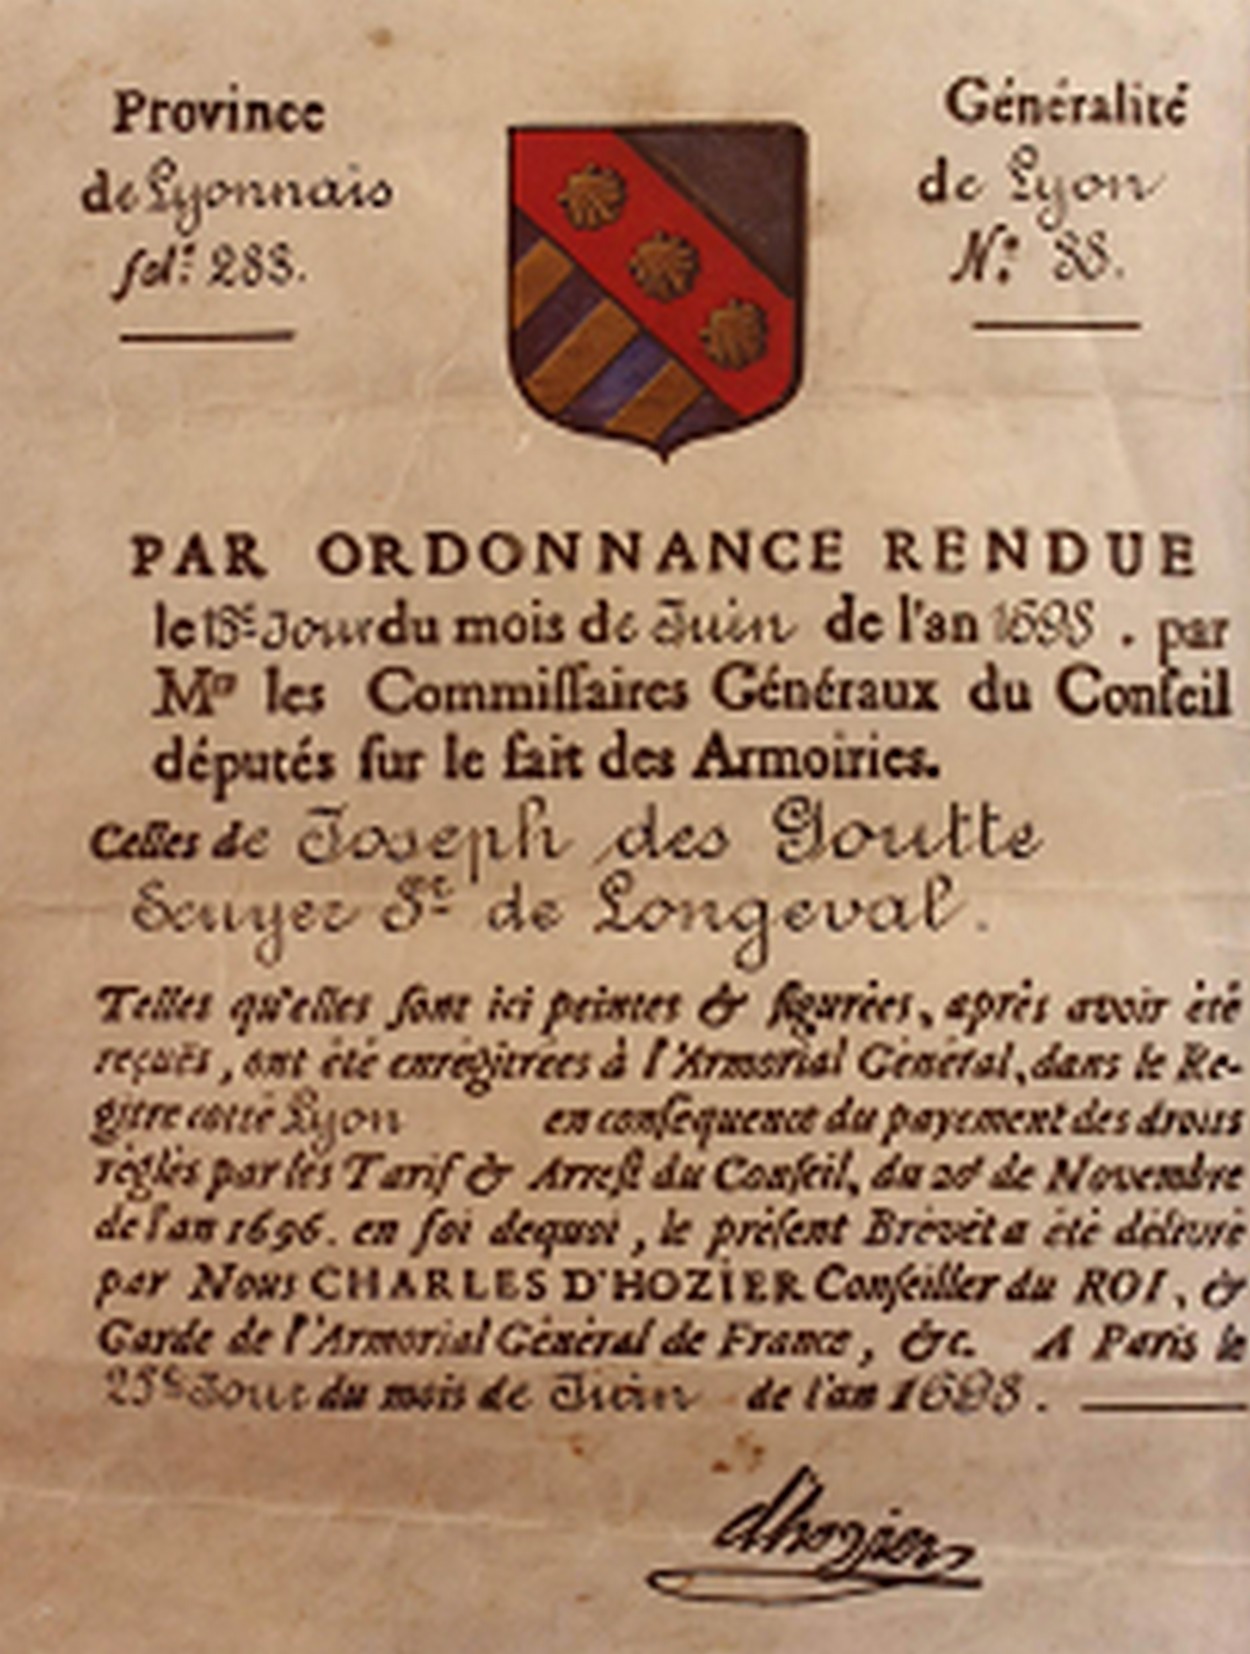 Province
de Lyonnais
fol.° 288.
Généralité
de Lyon
N.° 88.
PAR ORDONNANCE RENDUE
le 18.e Jour du mois de Juin de l'an 1698 . par
Mrs les Commiſſaires Généraux du Conſeil
députés ſur le fait des Armoiries.
Celles de Joseph des Goutte
Ecuyer Sr de Longeval.
Telles qu'elles ſont ici peintes & figurées, après avoir été
reçuës, ont été enrégitrées à l'Armorial Général, dans le Re-
gitre cotté Lyon en conſequence du payement des droits
réglés par les Tarif & Arreſt du Conſeil, du 20e de Novembre
de l'an 1696. en foi dequoi, le préſent Brévet a été délivré
par Nous CHARLES D'HOZIER Conſeiller du ROI, &
Garde de l'Armorial Général de France, &c. A Paris le
25e Jour du mois de Juin de l'an 1698.
d'hozier